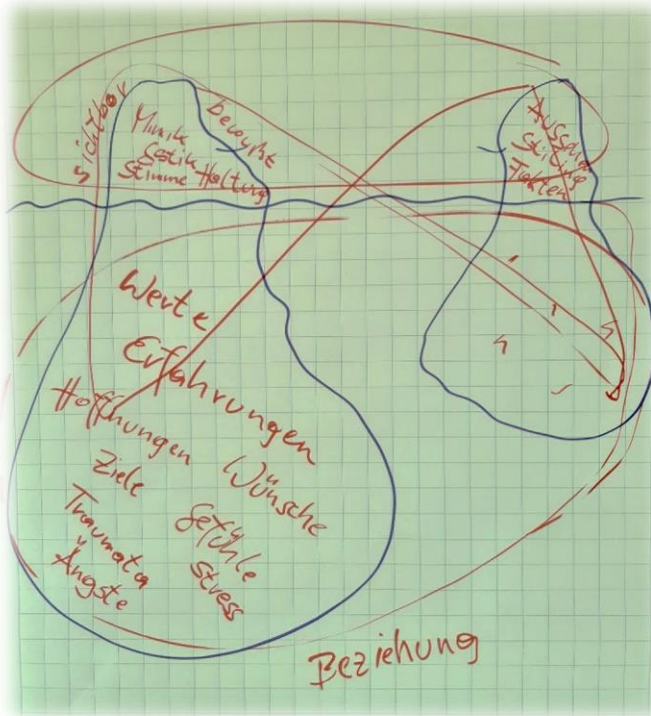 sichtbar
bewußt
Mimik
Gestik
Stimme Haltung
Aussehen
Fakten
Werte
Erfahrungen
Hoffnungen
Wünsche
Ziele
Gefühle
Traumata
Stress
Ängste
Beziehung